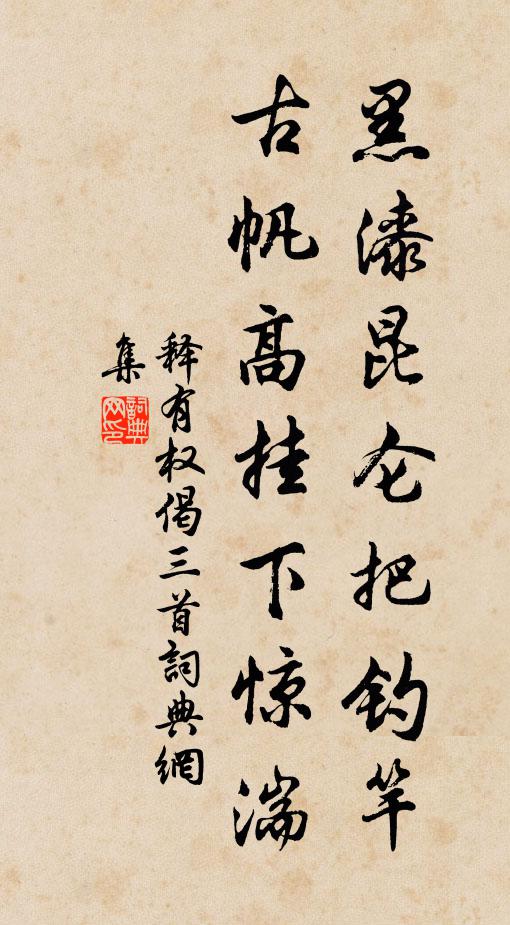 黑漆昆仑把钓竿
古帆高挂下惊湍
释有权偈三首詞典網
集
詞典
网印